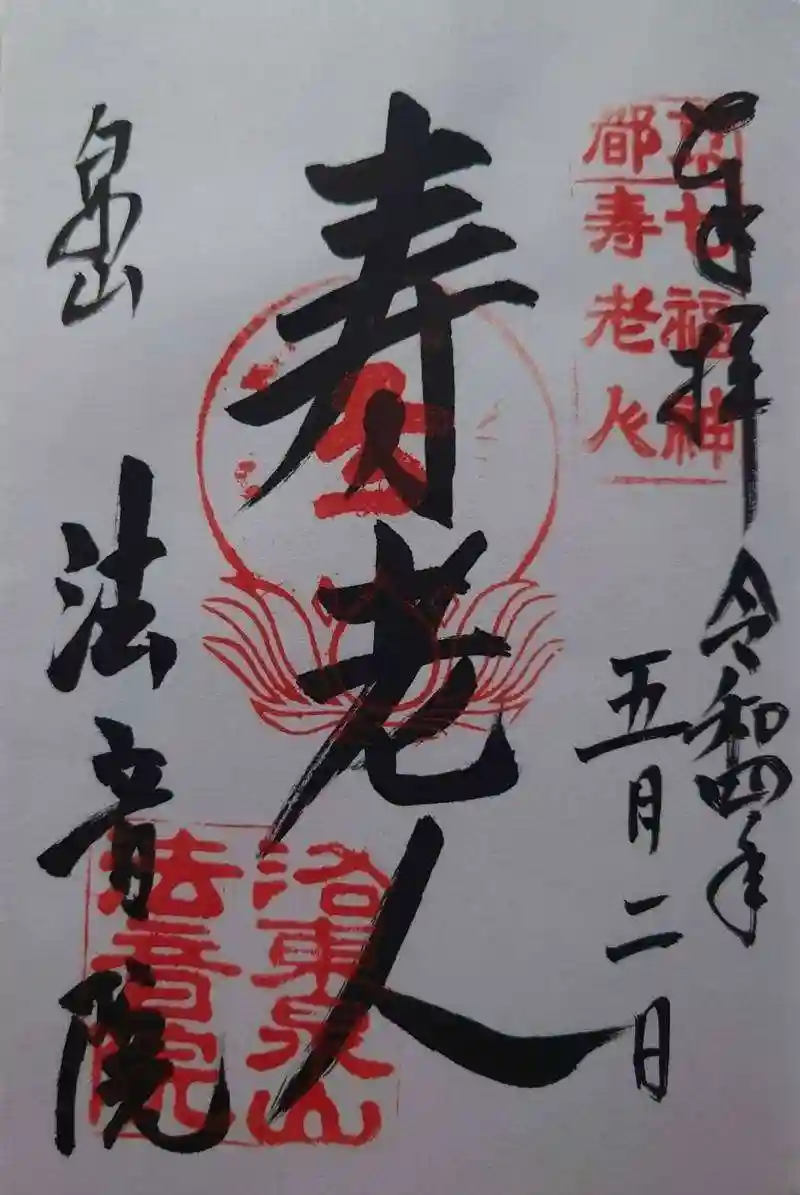 奉拝
令和四年
五月二日
七福神
都寿老人
寿老人
洛東泉山
法音院
泉山
法音院